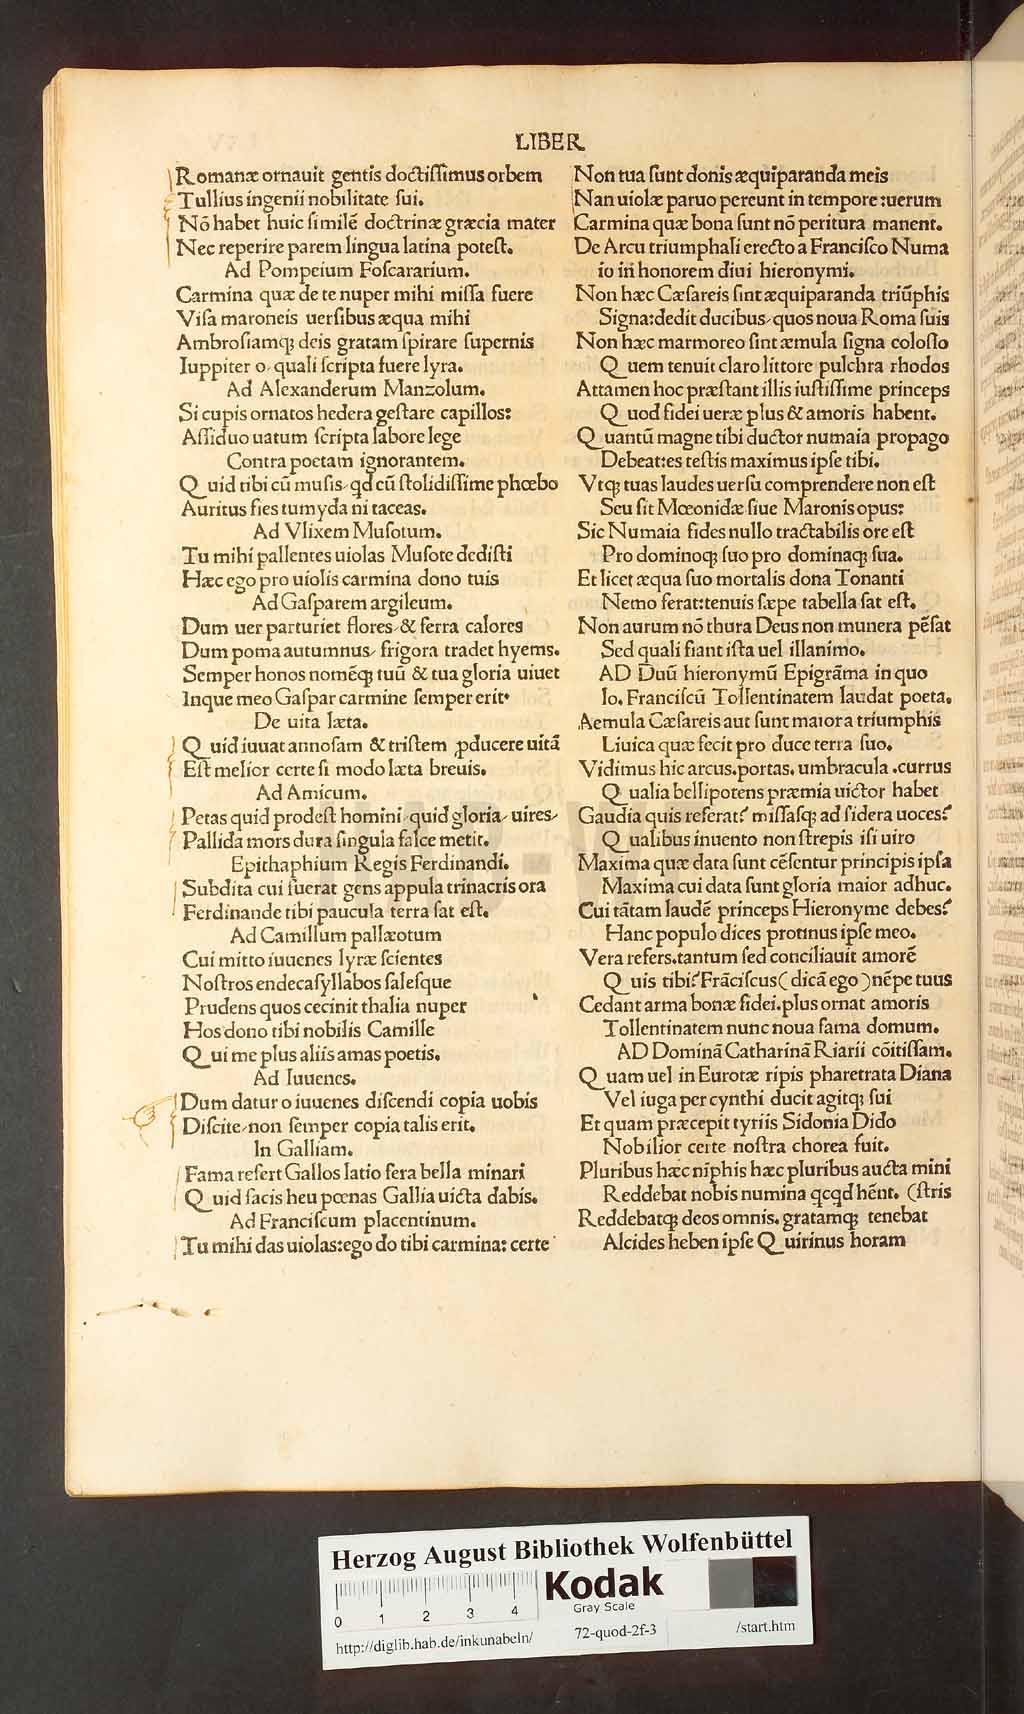 LIBER
Romanæ ornauit gentis doctiſſimus orbem
Tullius ingenii nobilitate ſui.
Nõ habet huic ſimilẽ doctrinæ græcia mater
Nec reperire parem lingua latina poteſt.
Ad Pompeium Foſcararium.
Carmina quæ de te nuper mihi miſſa fuere
Viſa maroneis uerſibus æqua mihi
Ambroſiamq; deis gratam ſpirare ſupernis
Iuppiter o quali ſcripta fuere lyra.
Ad Alexanderum Manzolum.
Si cupis ornatos hedera geſtare capillos:
Aſſiduo uatum ſcripta labore lege
Contra poetam ignorantem.
Quid tibi cũ muſis, qd cũ ſtolidiſſime phœbo
Auritus fies tu myda ni taceas.
Ad Vlixem Muſotum.
Tu mihi pallentes uiolas Muſote dediſti
Hæc ego pro uiolis carmina dono tuis
Ad Gaſparem argileum.
Dum uer parturiet flores, & ferra calores
Dum poma autumnus, frigora tradet hyems.
Semper honos nomẽq; tuũ & tua gloria uiuet
Inque meo Gaſpar carmine ſemper erit.
De uita læta.
Quid iuuat annoſam & triſtem ꝓducere uitã
Eſt melior certe ſi modo læta breuis.
Ad Amicum.
Petas quid prodeſt homini, quid gloria, uires,
Pallida mors dura ſingula falce metit.
Epithaphium Regis Ferdinandi.
Subdita cui fuerat gens appula trinacris ora
Ferdinande tibi paucula terra ſat eſt.
Ad Camillum pallæotum
Cui mitto iuuenes lyræ ſcientes
Noſtros endecaſyllabos ſaleſque
Prudens quos cecinit thalia nuper
Hos dono tibi nobilis Camille
Qui me plus aliis amas poetis.
Ad Iuuenes.
Dum datur o iuuenes diſcendi copia uobis
Diſcite, non ſemper copia talis erit.
In Galliam.
Fama refert Gallos latio fera bella minari
Quid facis heu pœnas Gallia uicta dabis.
Ad Franciſcum placentinum.
Tu mihi das uiolas: ego do tibi carmina: certe
Non tua ſunt donis æquiparanda meis
Nan uiolæ paruo pereunt in tempore: uerum
Carmina quæ bona ſunt nõ peritura manent.
De Arcu triumphali erecto a Franciſco Numa
io in honorem diui hieronymi.
Non hæc Cæſareis ſint æquiparanda triũphis
Signa: dedit ducibus, quos noua Roma ſuis
Non hæc marmoreo ſint æmula ſigna coloſſo
Quem tenuit claro littore pulchra rhodos
Attamen hoc præſtant illis iuſtiſſime princeps
Quod fidei ueræ plus & amoris habent.
Quantũ magne tibi ductor numaia propago
Debeat: es teſtis maximus ipſe tibi.
Vtq; tuas laudes uerſu comprendere non eſt
Seu ſit Mœonidæ ſiue Maronis opus:
Sic Numaia fides nullo tractabilis ore eſt
Pro dominoq; ſuo pro dominaq; ſua.
Et licet æqua ſuo mortalis dona Tonanti
Nemo ferat: tenuis ſæpe tabella ſat eſt.
Non aurum nõ thura Deus non munera pẽſat
Sed quali fiant iſta uel illanimo.
AD Diuũ hieronymũ Epigrãma in quo
Io. Franciſcũ Tollentinatem laudat poeta.
Aemula Cæſareis aut ſunt maiora triumphis
Liuica quæ fecit pro duce terra ſuo.
Vidimus hic arcus. portas. umbracula. currus
Qualia bellipotens præmia uictor habet
Gaudia quis referat? miſſaſq; ad ſidera uoces?
Qualibus inuento non ſtrepis iſi uiro
Maxima quæ data ſunt cẽſentur principis ipſa
Maxima cui data ſunt gloria maior adhuc.
Cui tãtam laudẽ princeps Hieronyme debes?
Hanc populo dices protinus ipſe meo.
Vera refers. tantum ſed conciliauit amorẽ
Quis tibi? Frãciſcus (dicã ego) nẽpe tuus
Cedant arma bonæ fidei. plus ornat amoris
Tollentinatem nunc noua fama domum.
AD Dominã Catharinã Riarii cõitiſſam.
Quam uel in Eurotæ ripis pharetrata Diana
Vel iuga per cynthi ducit agitq; ſui
Et quam præcepit tyriis Sidonia Dido
Nobilior certe noſtra chorea fuit.
Pluribus hæc nĩphis hæc pluribus aucta mini
Reddebat nobis numina qcqd hẽnt. (ſtris
Reddebatq; deos omnis. gratamq; tenebat
Alcides heben ipſe Quirinus horam
HAB-WF
Herzog August Bibliothek Wolfenbüttel
0 1 2 3 4
Kodak
Gray Scale
http://diglib.hab.de/inkunabeln/
72-quod-2f-3
/start.htm